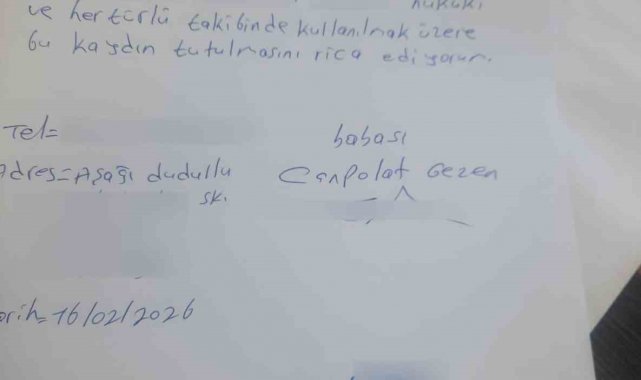 hukuki
ve her türlü takibinde kullanılmak üzere
bu kaydın tutulmasını rica ediyorum.
Tel=
babası
Adres=Aşağı dudullu
Canpolat Gezen
sk.
arih=16/02/2026